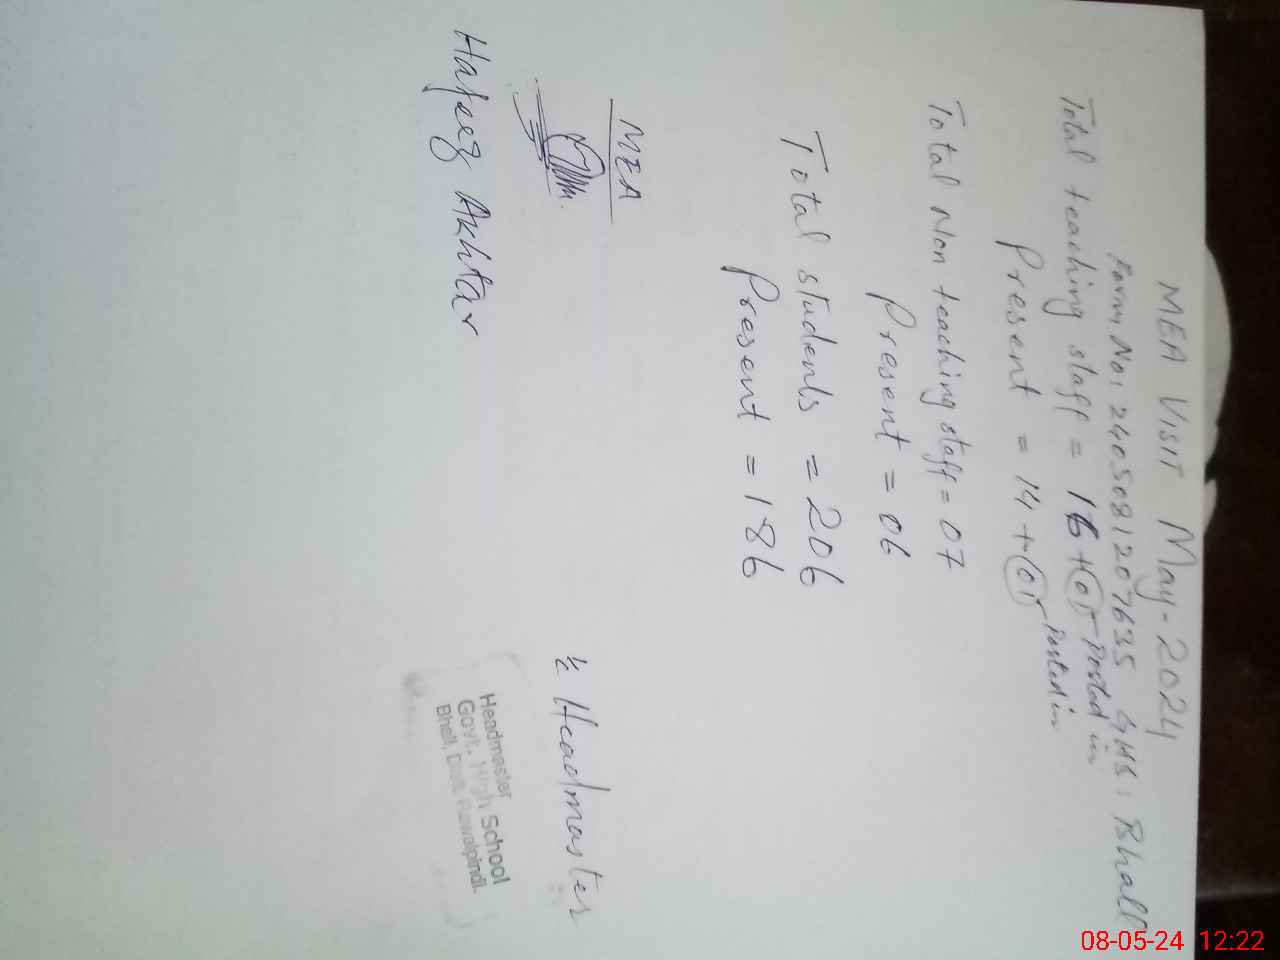 MEA Visit May-2024
Form No: 2405081207635 GHS: Bhall
Total teaching staff = 16 + 01 Posted in
Present = 14 + 01 Posted in
Total Non teaching staff = 07
Present = 06
Total students = 206
Present = 186
MEA
Hafeez Akhtar
Headmaster
Headmaster
Govt. High School
Bhall, Distt. Rawalpindi.
08-05-24 12:22